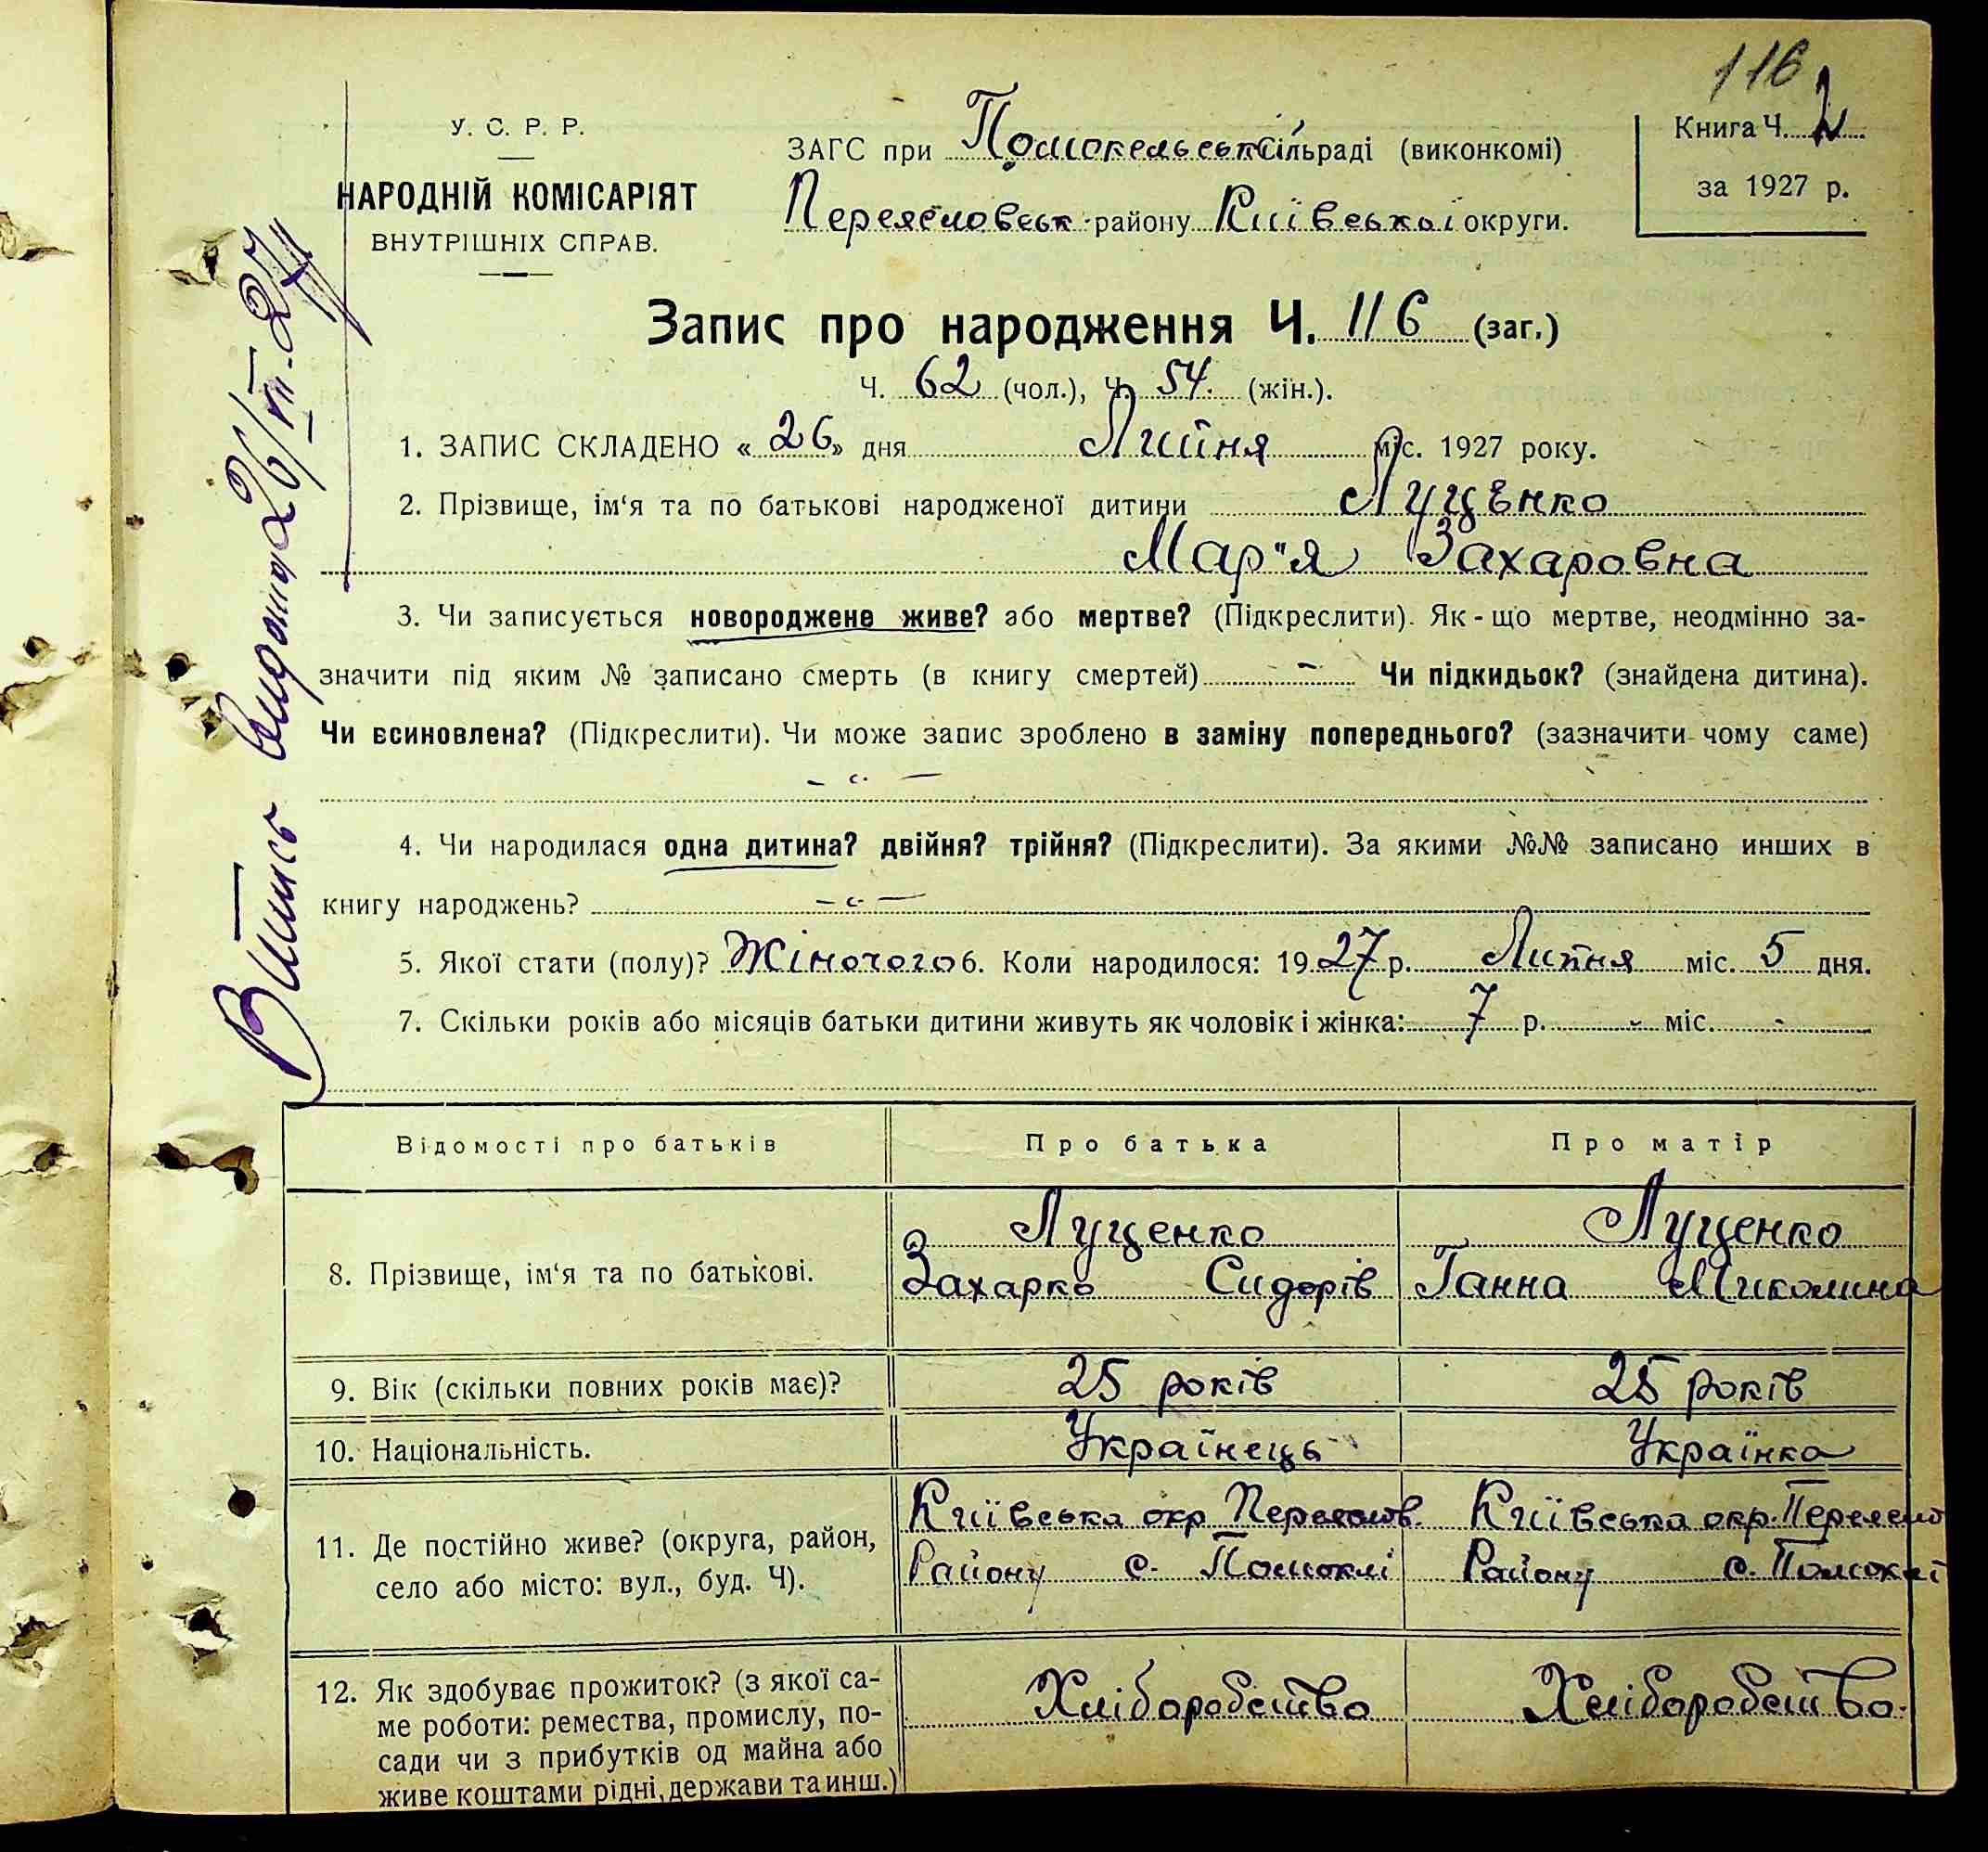 116
У. С. Р. Р.
НАРОДНІЙ КОМІСАРІЯТ
ВНУТРІШНІХ СПРАВ.
ЗАГС при Помокельській сільраді (виконкомі)
Переяславськ району Київської округи.
Книга Ч. 2
за 1927 р.
Випись видана 26/VII-27
Запис про народження Ч. 116 (заг.)
Ч. 62 (чол.), Ч. 54. (жін.).
1. ЗАПИС СКЛАДЕНО «26» дня Липня міс. 1927 року.
2. Прізвище, ім‘я та по батькові народженої дитини Луценко
Мар"я Захаровна
3. Чи записується новороджене живе? або мертве? (Підкреслити). Як-що мертве, неодмінно за-
значити під яким № записано смерть (в книгу смертей) - Чи підкидьок? (знайдена дитина).
Чи всиновлена? (Підкреслити). Чи може запис зроблено в заміну попереднього? (зазначити чому саме)
4. Чи народилася одна дитина? двійня? трійня? (Підкреслити). За якими №№ записано инших в
книгу народжень?
5. Якої стати (полу)? Жіночого 6. Коли народилося: 1927 р. Липня міс. 5 дня.
7. Скільки років або місяців батьки дитини живуть як чоловік і жінка: 7 р. - міс. -
Відомості про батьків Про батька Про матір
8. Прізвище, ім‘я та по батькові. Луценко Луценко
Захарко Сидорів Ганна Миколина
9. Вік (скільки повних років має)? 25 років 25 років
10. Національність. Українець Українка
11. Де постійно живе? (округа, район, Київська окр Переяслов. Київська окр. Переясло
село або місто: вул., буд. Ч). Району с. Помоклі Району с. Помоклі
12. Як здобуває прожиток? (з якої са- Хліборобство Хліборобство.
ме роботи: ремества, промислу, по-
сади чи з прибутків од майна або
живе коштами рідні, держави та инш.)